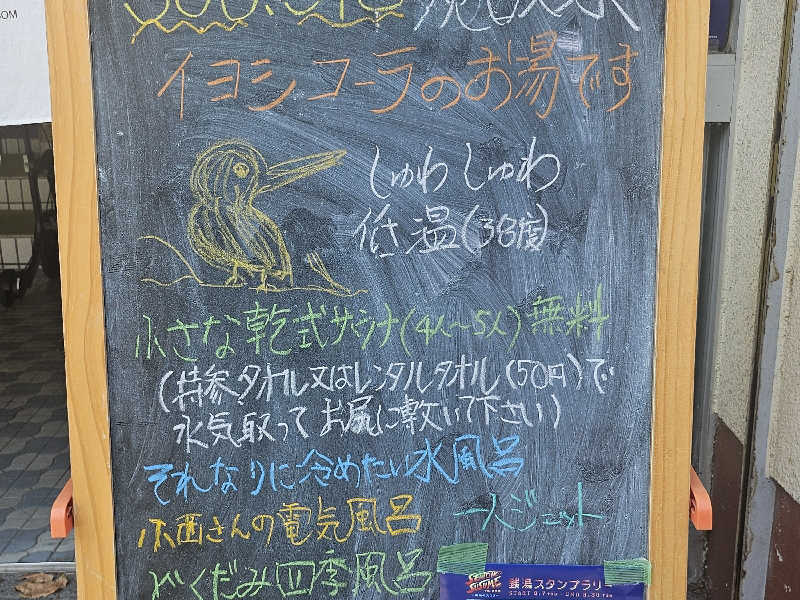 イヨシコーラのお湯です
しゅわしゅわ
低温(38度)
小さな乾式サウナ(4人〜5人)無料
(持参タオル又はレンタルタオル(50円)で
水気取ってお尻に敷いて下さい)
それなりに冷めたい水風呂
小西さんの電気風呂
一人ジェット
どくだみ四季風呂
銭湯スタンプラリー